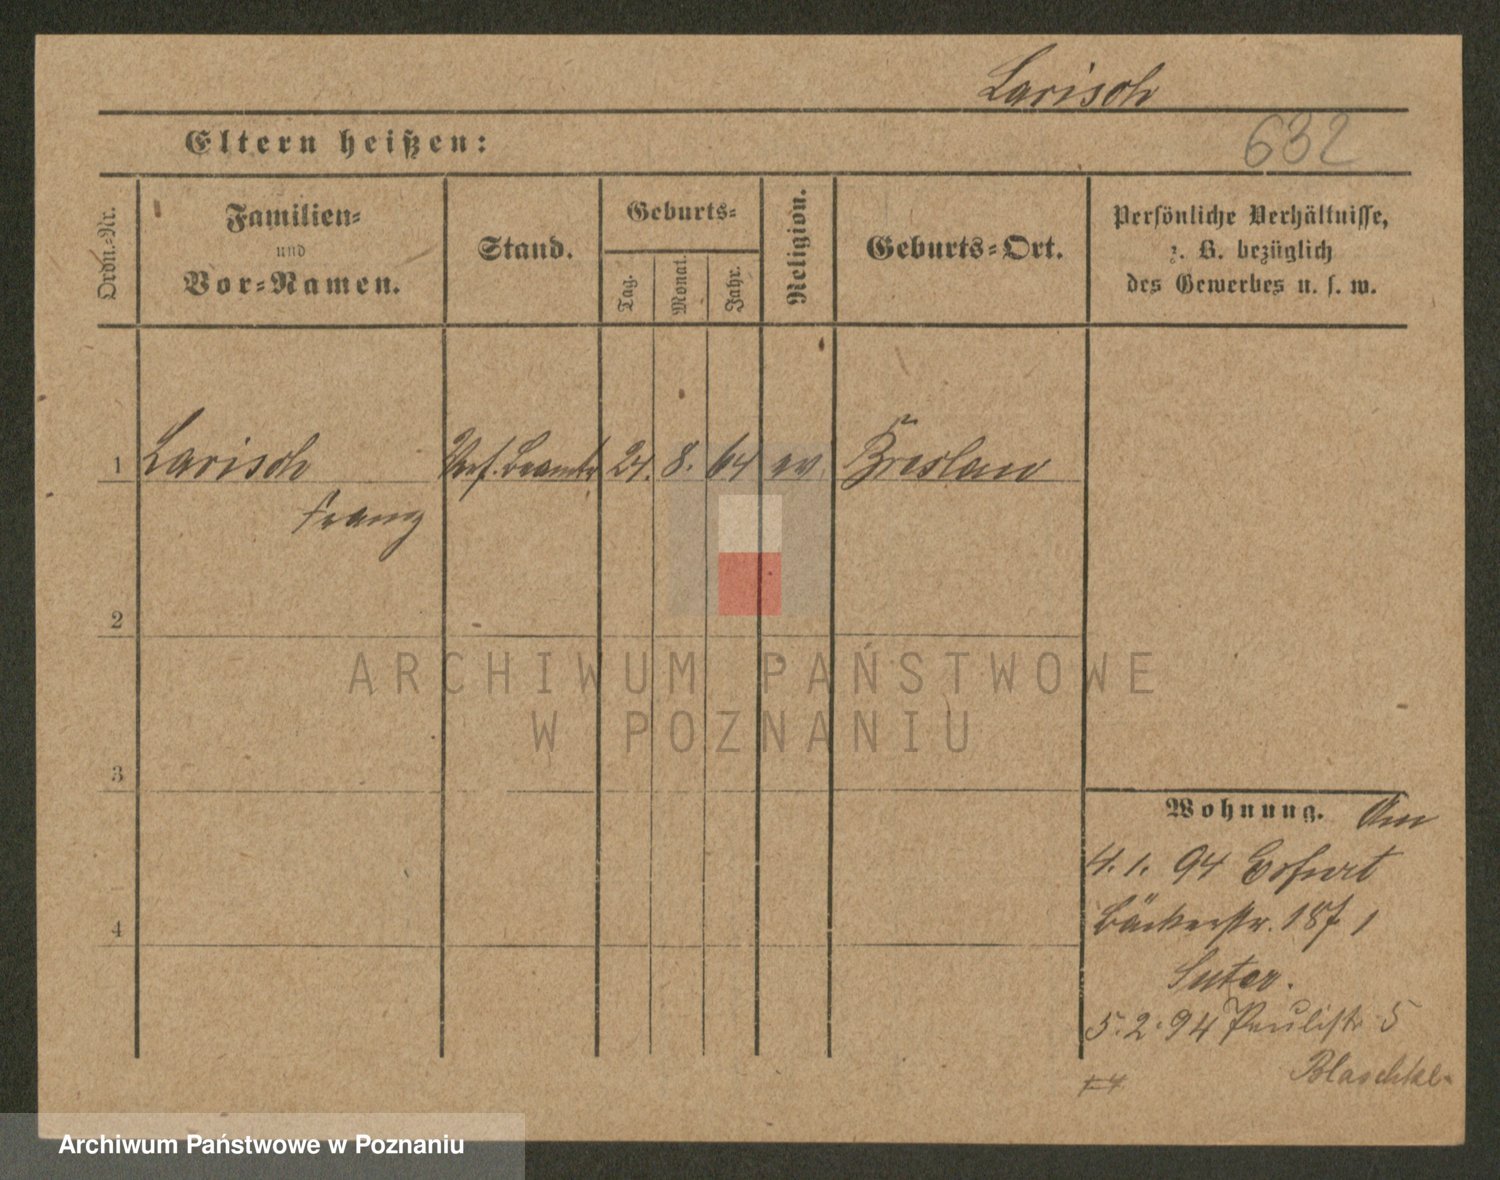 Larisch
632
Eltern heißen:
Ordn.-Nr.
Familien-
und
Vor-Namen.
Stand.
Geburts-
Tag.
Monat.
Jahr.
Religion.
Geburts-Ort.
Persönliche Verhältnisse,
z. B. bezüglich
des Gewerbes u. s. w.
1 Larisch Verf. Beamter 24. 8. 64 ev. Breslau
Franz
2
3
4
ARCHIWUM PAŃSTWOWE
W POZNANIU
Wohnung. Am
4. 1. 94 Erfurt
Bäckerstr. 18
Suter.
5. 2. 94 Paulistr 5
Blaschke
Archiwum Państwowe w Poznaniu